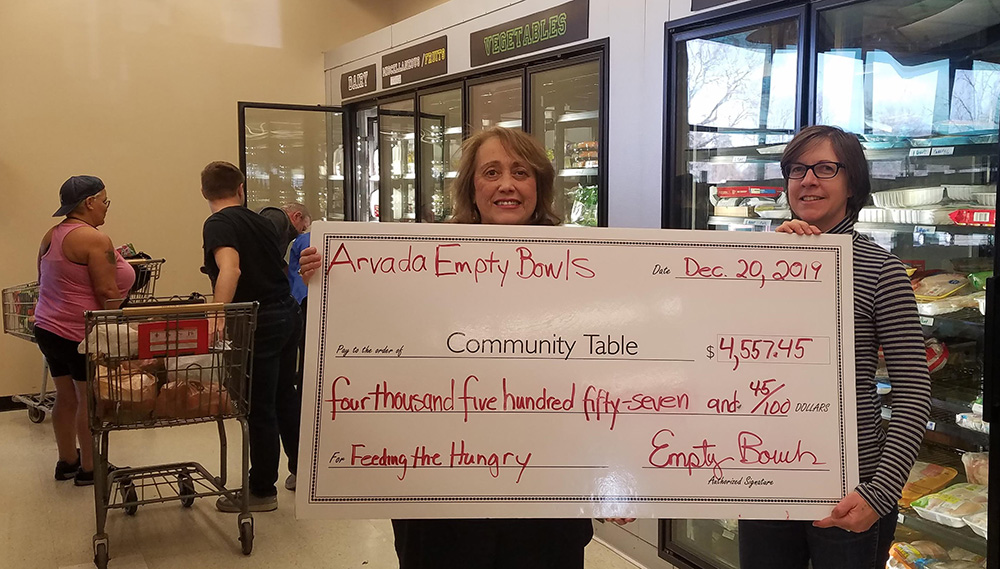 DAIRY
MISCELLANEOUS/FRUITS
VEGETABLES
Arvada Empty Bowls
Date Dec. 20, 2019
Pay to the order of Community Table $4,557.45
four thousand five hundred fifty-seven and 45/100 DOLLARS
For Feeding the Hungry Empty Bowls
Authorized Signature